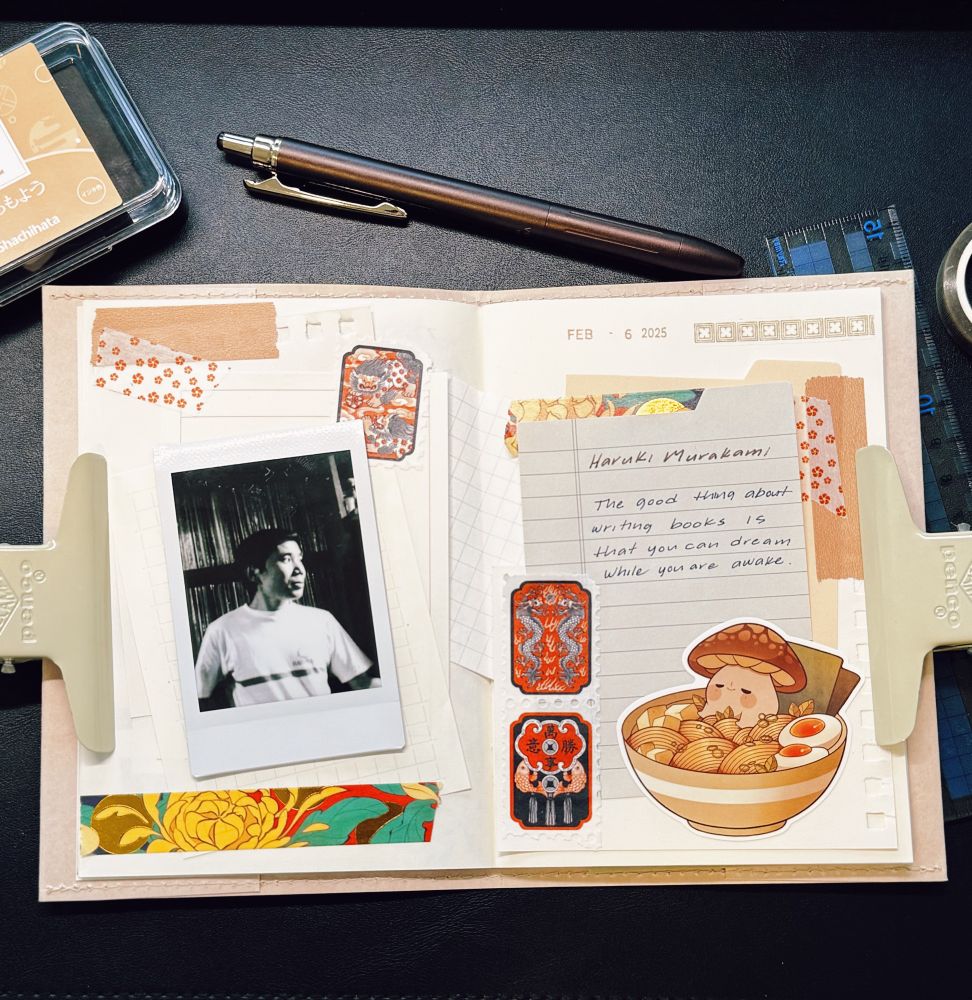 もよう
Shachihata
インキ色
15
10
FEB - 6 2025
Haruki Murakami
The good thing about
writing books is
that you can dream
while you are awake.
penco®
penco®
萬
意 勝
事